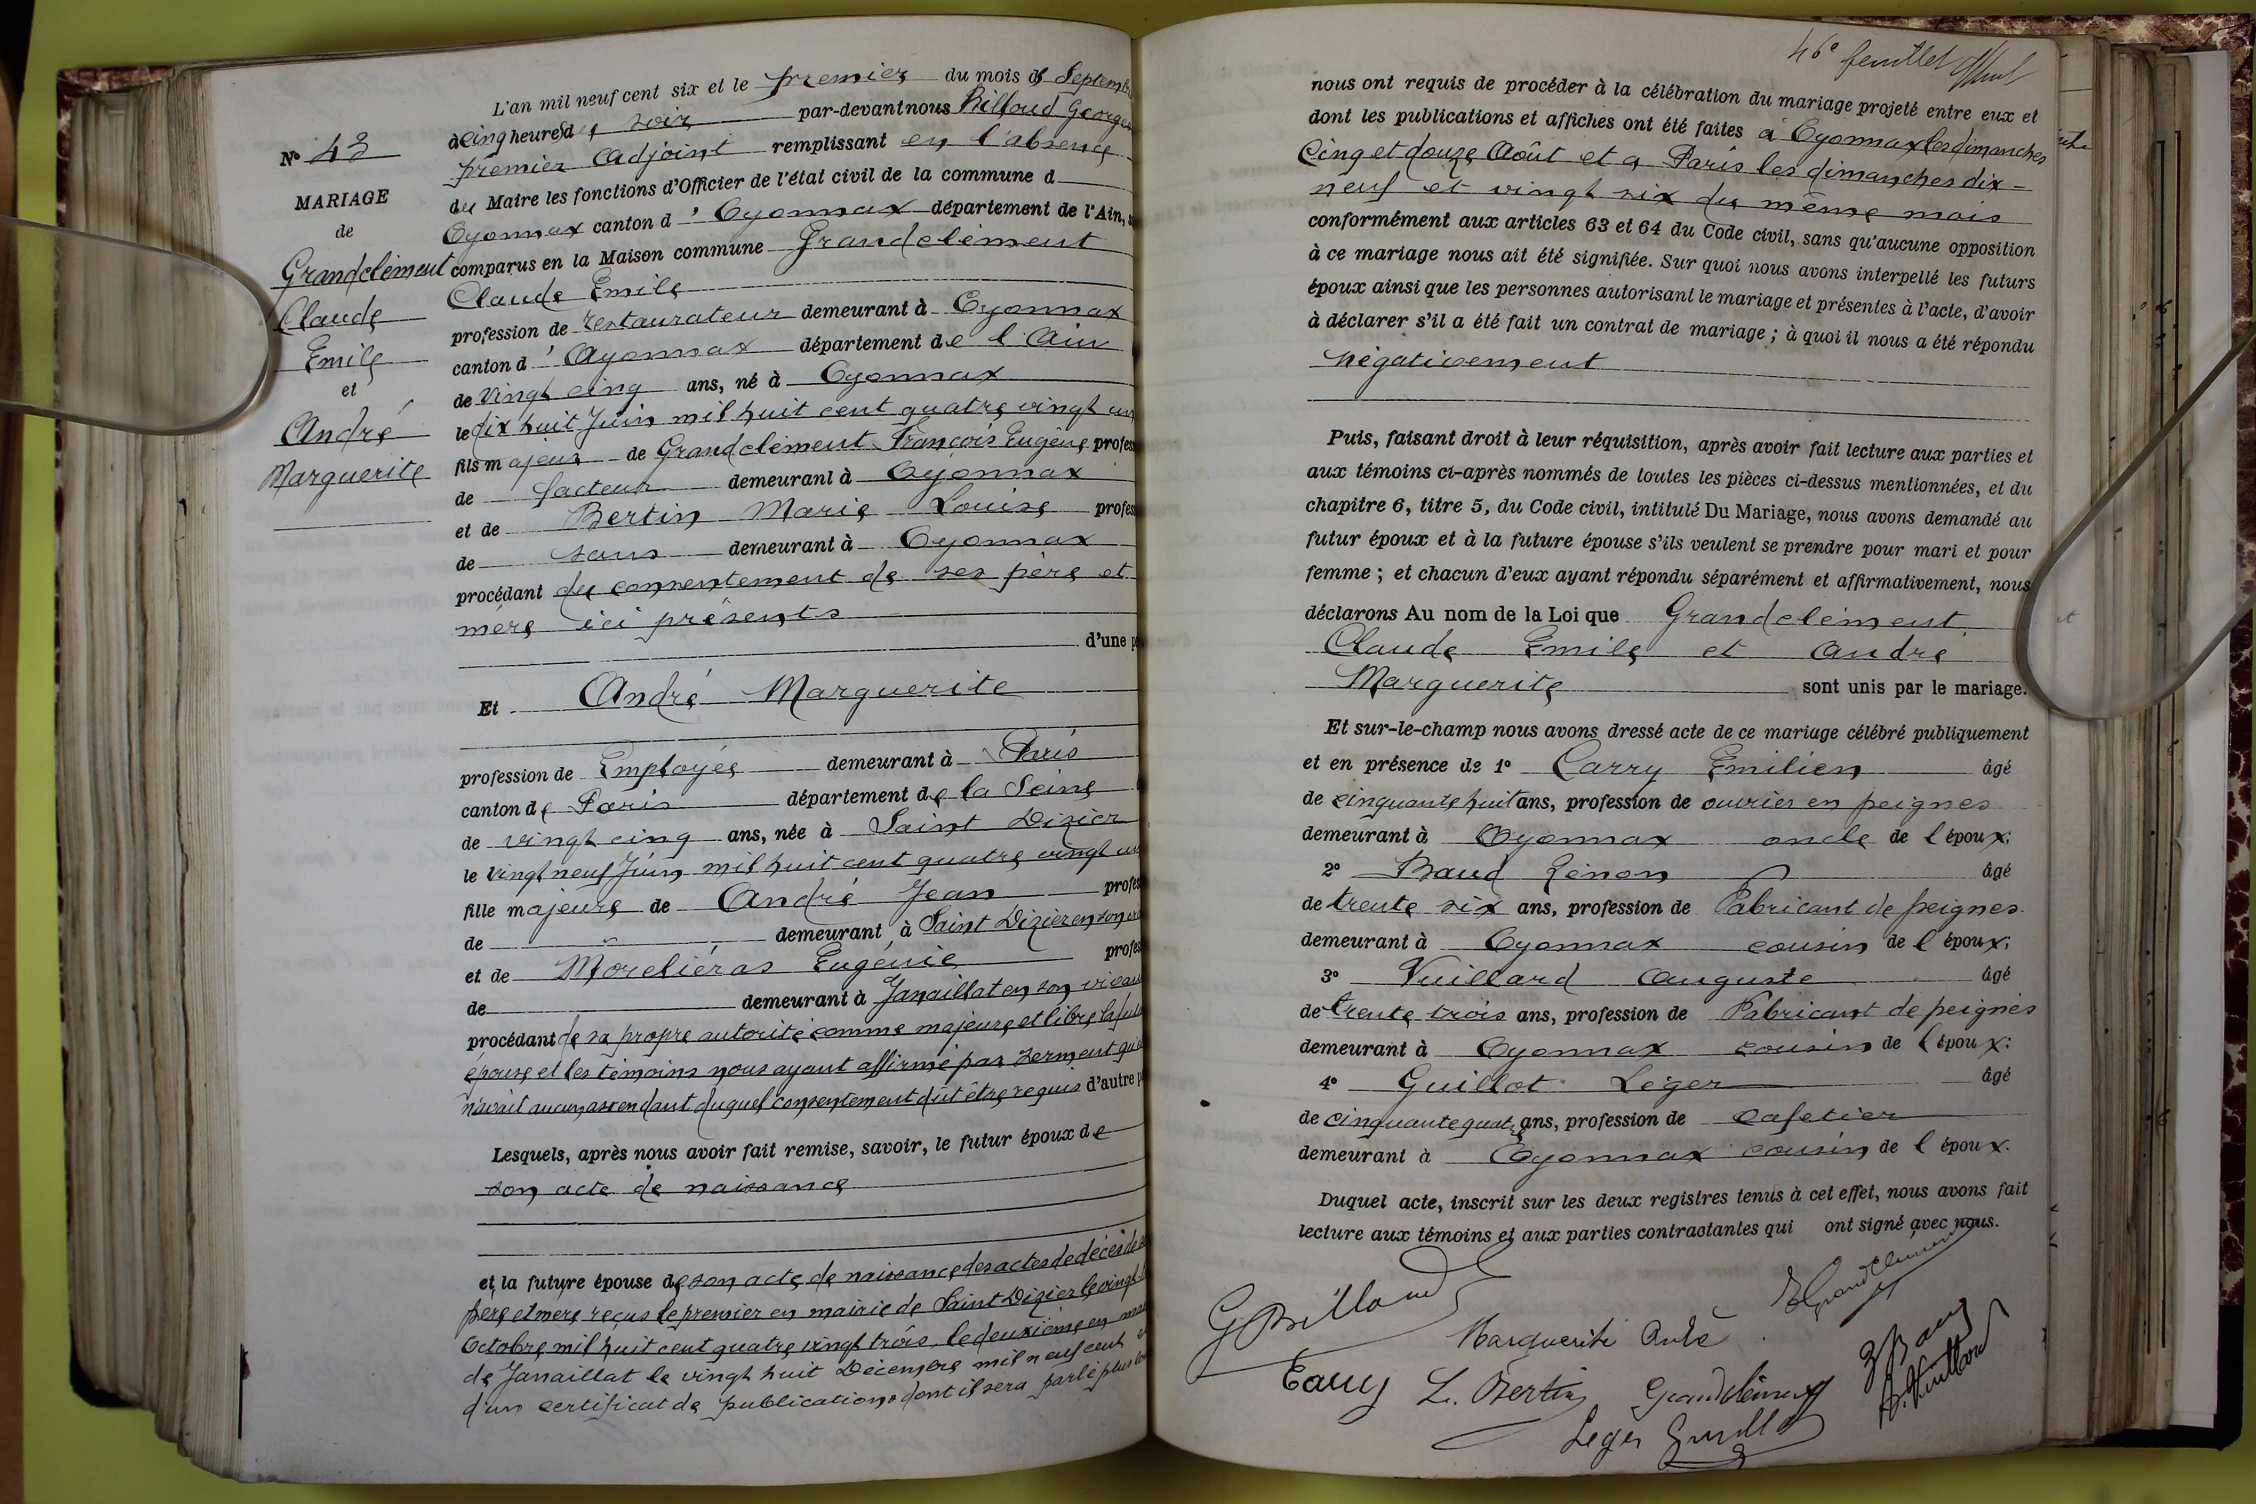 N° 43
MARIAGE
de
Grandclément
Claude
Emile
et
André
Marguerite
L'an mil neuf cent six et le premier du mois de Septemb
à cinq heures du soir par-devant nous Billoud Georges
premier Adjoint remplissant en l'absence
du Maire les fonctions d'Officier de l'état civil de la commune d
Oyonnax canton d'Oyonnax département de l'Ain,
comparus en la Maison commune Grandclément
Claude Emile
profession de restaurateur demeurant à Oyonnax
canton d'Oyonnax département de l'Ain
de vingt cinq ans, né à Oyonnax
le dix huit Juin mil huit cent quatre vingt un
fils majeur de Grandclément François Eugène profes
de facteur demeurant à Oyonnax
et de Bertin Marie Louise profes
de sans demeurant à Oyonnax
procédant du consentement de ses père et
mère ici présents
d'une p
Et André Marguerite
profession de Employée demeurant à Paris
canton de Paris département de la Seine
de vingt cinq ans, née à Saint Dizier
le vingt neuf Juin mil huit cent quatre vingt un
fille majeure de André Jean profes
de demeurant à Saint Dizier en son
et de Moreliéras Eugénie profes
de demeurant à Janaillat en son vivan
procédant de sa propre autorité comme majeure et libre la fut
épouse et les témoins nous ayant affirmé par serment qu'
n'avait aucun ascendant duquel consentement dût être requis d'autre p
Lesquels, après nous avoir fait remise, savoir, le futur époux de
son acte de naissance
et, la future épouse de son acte de naissance des actes de décès de
père et mère reçus le premier en mairie de Saint Dizier le vingt
Octobre mil huit cent quatre vingt trois, le deuxième en
de Janaillat le vingt huit Décembre mil neuf cent
d'un certificat de publications dont il sera parlé plus
46e feuillet
nous ont requis de procéder à la célébration du mariage projeté entre eux et
dont les publications et affiches ont été faites à Oyonnax les dimanches
Cinq et douze Août et à Paris les dimanches dix-
neuf et vingt six du même mois
conformément aux articles 63 et 64 du Code civil, sans qu'aucune opposition
à ce mariage nous ait été signifiée. Sur quoi nous avons interpellé les futurs
époux ainsi que les personnes autorisant le mariage et présentes à l'acte, d'avoir
à déclarer s'il a été fait un contrat de mariage ; à quoi il nous a été répondu
négativement
Puis, faisant droit à leur réquisition, après avoir fait lecture aux parties et
aux témoins ci-après nommés de toutes les pièces ci-dessus mentionnées, et du
chapitre 6, titre 5, du Code civil, intitulé Du Mariage, nous avons demandé au
futur époux et à la future épouse s'ils veulent se prendre pour mari et pour
femme ; et chacun d'eux ayant répondu séparément et affirmativement, nous
déclarons Au nom de la Loi que Grandclément
Claude Emile et André
Marguerite sont unis par le mariage.
Et sur-le-champ nous avons dressé acte de ce mariage célébré publiquement
et en présence de 1° Carry Emilien âgé
de cinquante huit ans, profession de ouvrier en peignes
demeurant à Oyonnax oncle de l'époux;
2° Baud Zénon âgé
de trente six ans, profession de Fabricant de peignes
demeurant à Oyonnax cousin de l'époux;
3° Vuillard Auguste âgé
de trente trois ans, profession de Fabricant de peignes
demeurant à Oyonnax cousin de l'époux;
4° Guillot Léger âgé
de cinquante quatre ans, profession de cafetier
demeurant à Oyonnax cousin de l'époux.
Duquel acte, inscrit sur les deux registres tenus à cet effet, nous avons fait
lecture aux témoins et aux parties contractantes qui ont signé avec nous.
GBilloud
Marguerite André
E Grandclément
Carry L. Bertin Grandclément
ZBaud
A. Vuillard
Léger Guillot